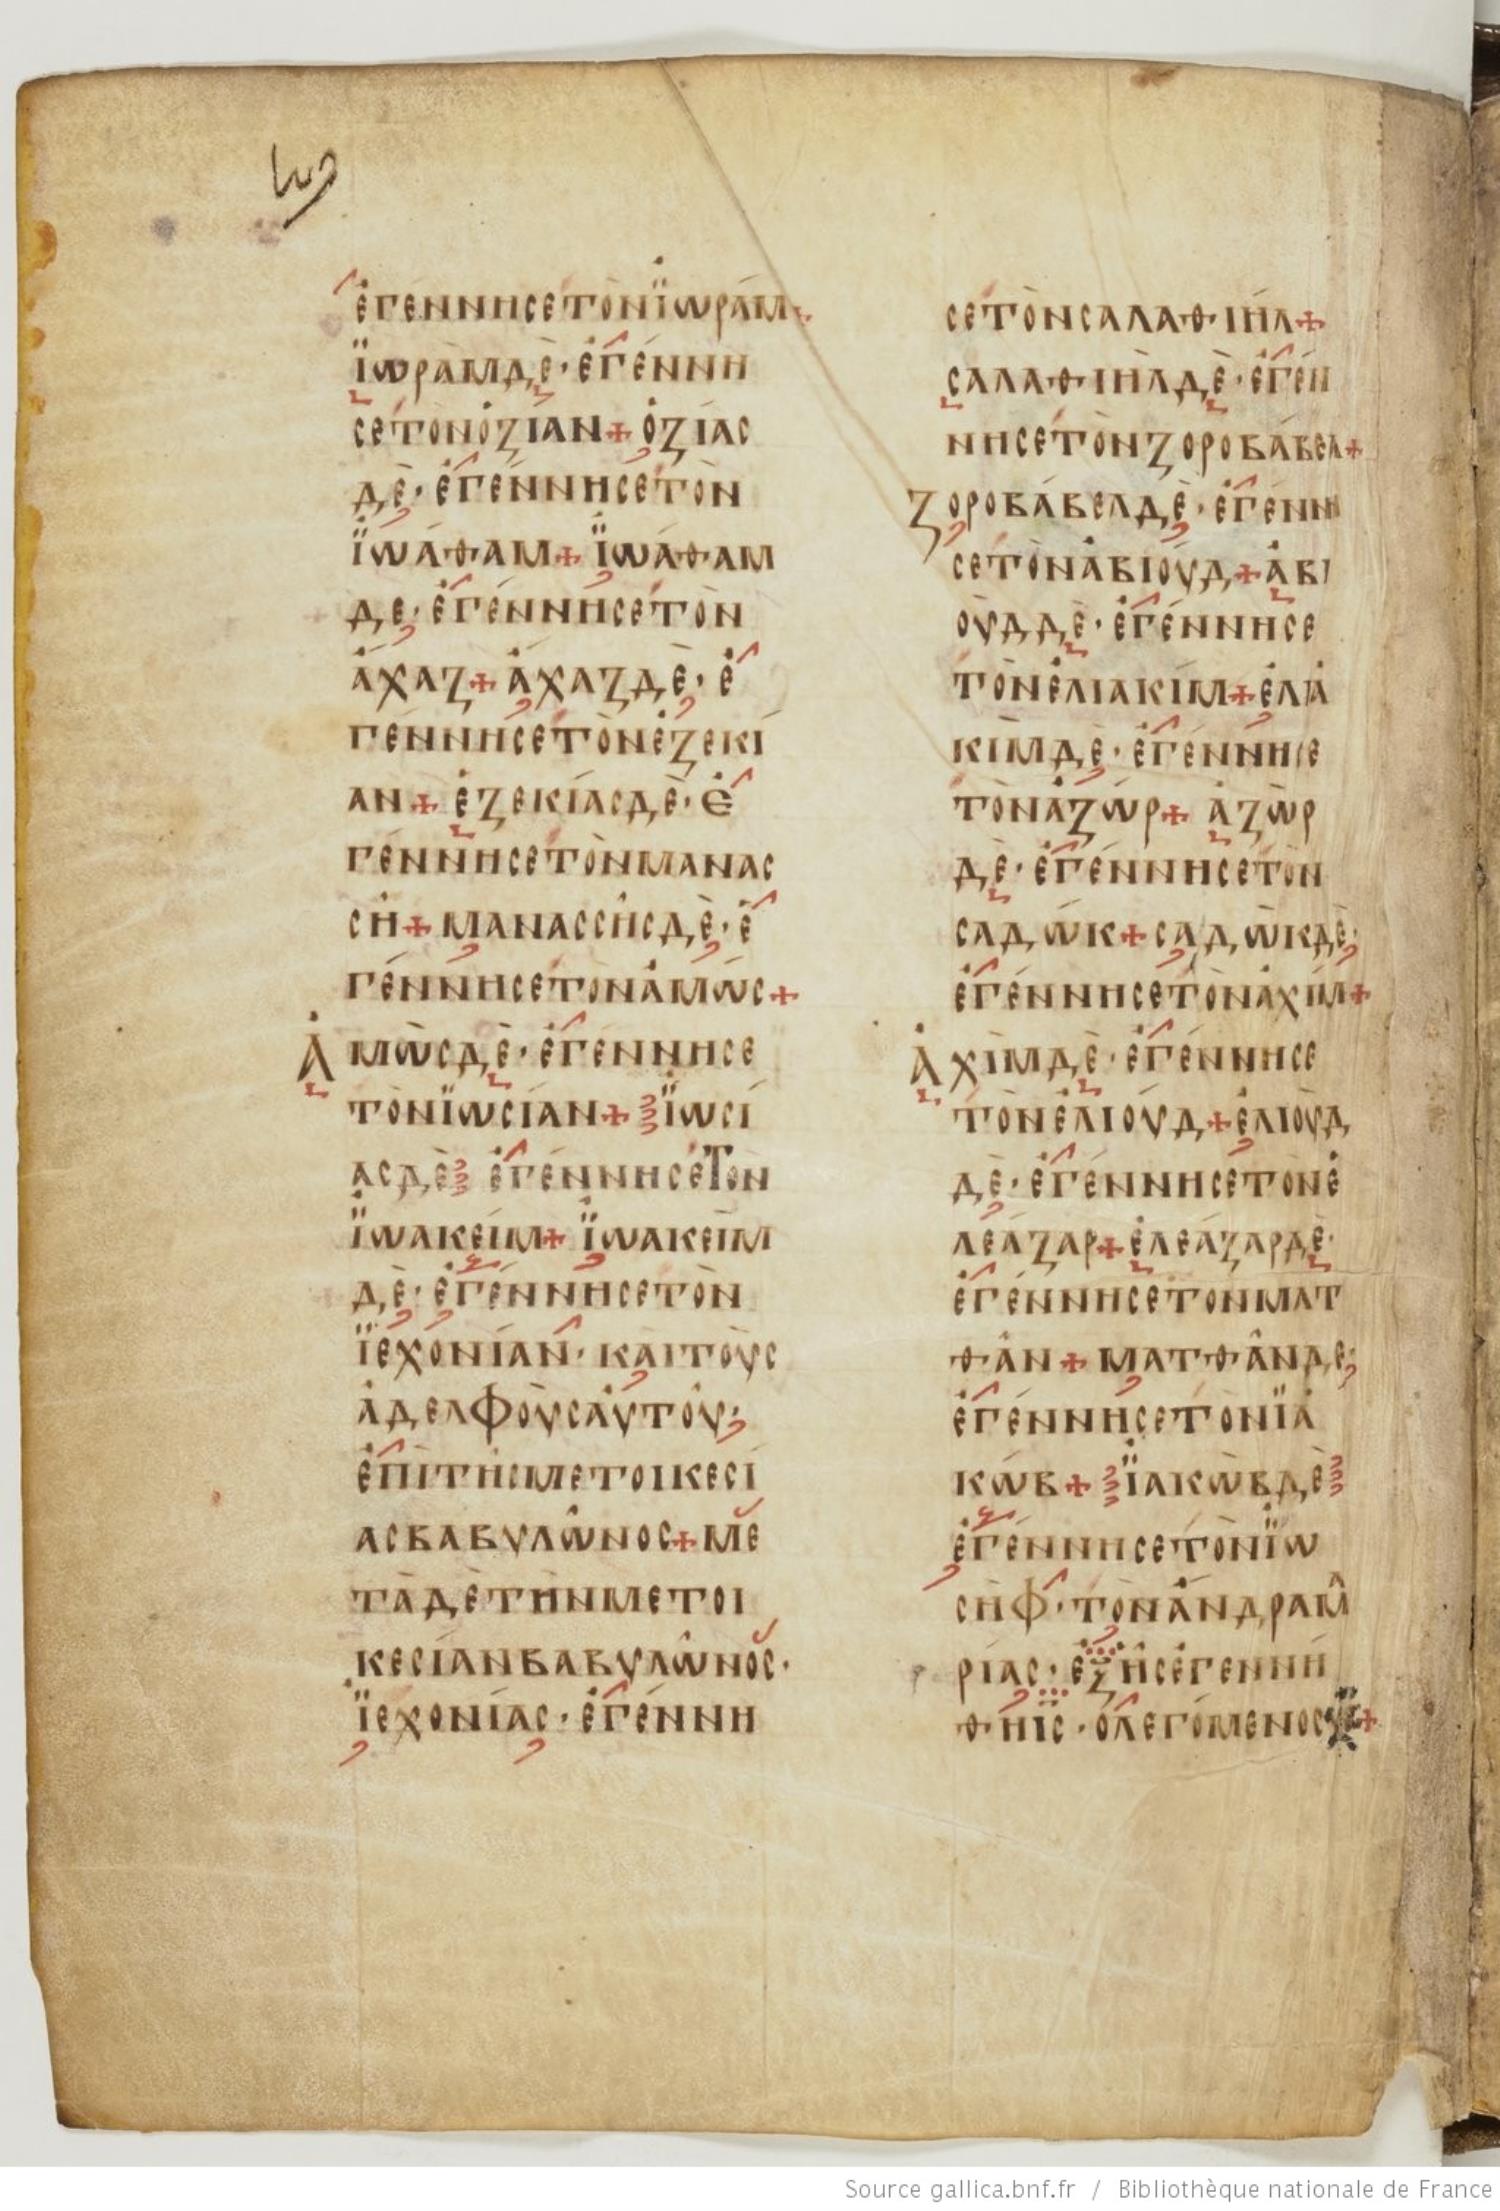 ἐγέννησετὸνϊωράμ+
ϊωρὰμδὲ·ἐγέννη
σετὸνὀζίαν+ὀζίας
δὲ·ἐγέννησετὸν
ϊωάθαμ+ϊωάθαμ
δε·ἐγέννησετὸν
ἄχαζ+ἄχαζδὲ·ἐ
γέννησετὸνἐζεκί
αν+ἐζεκίασδὲ·ἐ
γέννησετὸνμανας
σῆ+μανασσῆσδὲ·ἐ
γέννησετὸνἀμώς+
Ἀμὼσδὲ·ἐγέννησε
τὸνϊωσίαν+ϊωσί
ασδὲἐγέννησετὸν
ϊωακείμ+ϊωακεὶμ
δὲ·ἐγέννησετὸν
ϊεχονίαν·καὶτοὺς
ἀδελφοὺσἀυτοῦ·
ἐπὶτῆσμετοικεσί
ασβαβυλῶνος+Με
τὰδὲτὴνμετοι
κεσίανβαβυλῶνος·
ϊεχονίας·ἐγέννη
σετὸνσαλαθιήλ+
σαλαθιὴλδὲ·ἐγέν
νησετὸνζοροβάβελ+
Ζοροβάβελδὲ·ἐγέννη
σετὸνἀβιούδ+ἀβι
οὺδδὲ·ἐγέννησε
τὸνἐλιακίμ+ἐλιἀ
κὶμδὲ·ἐγέννησε
τὸνἀζώρ+ἀζὼρ
δὲ·ἐγέννησετὸν
σαδώκ+σαδὼκδὲ·
ἐγέννησετὸνἀχίμ+
Ἀχὶμδὲ·ἐγέννησε
τὸνἐλιούδ+ἐλιοὺδ
δὲ·ἐγέννησετὸνἐ
λεάζαρ+ἐλεάζαρδὲ·
ἐγέννησετὸνματ
θὰν+ματθὰνδε·
ἐγέννησετὸνϊἀ
κώβ+ϊακὼβδὲ
ἐγέννησετὸνϊω
σὴφ·τὸνἄνδραμ
ρίας·ἐξῆσἐγεννή
θηῑς̄·ὁλεγόμενοσχ̄ς̄+
Source gallica.bnf.fr / Bibliothèque nationale de France